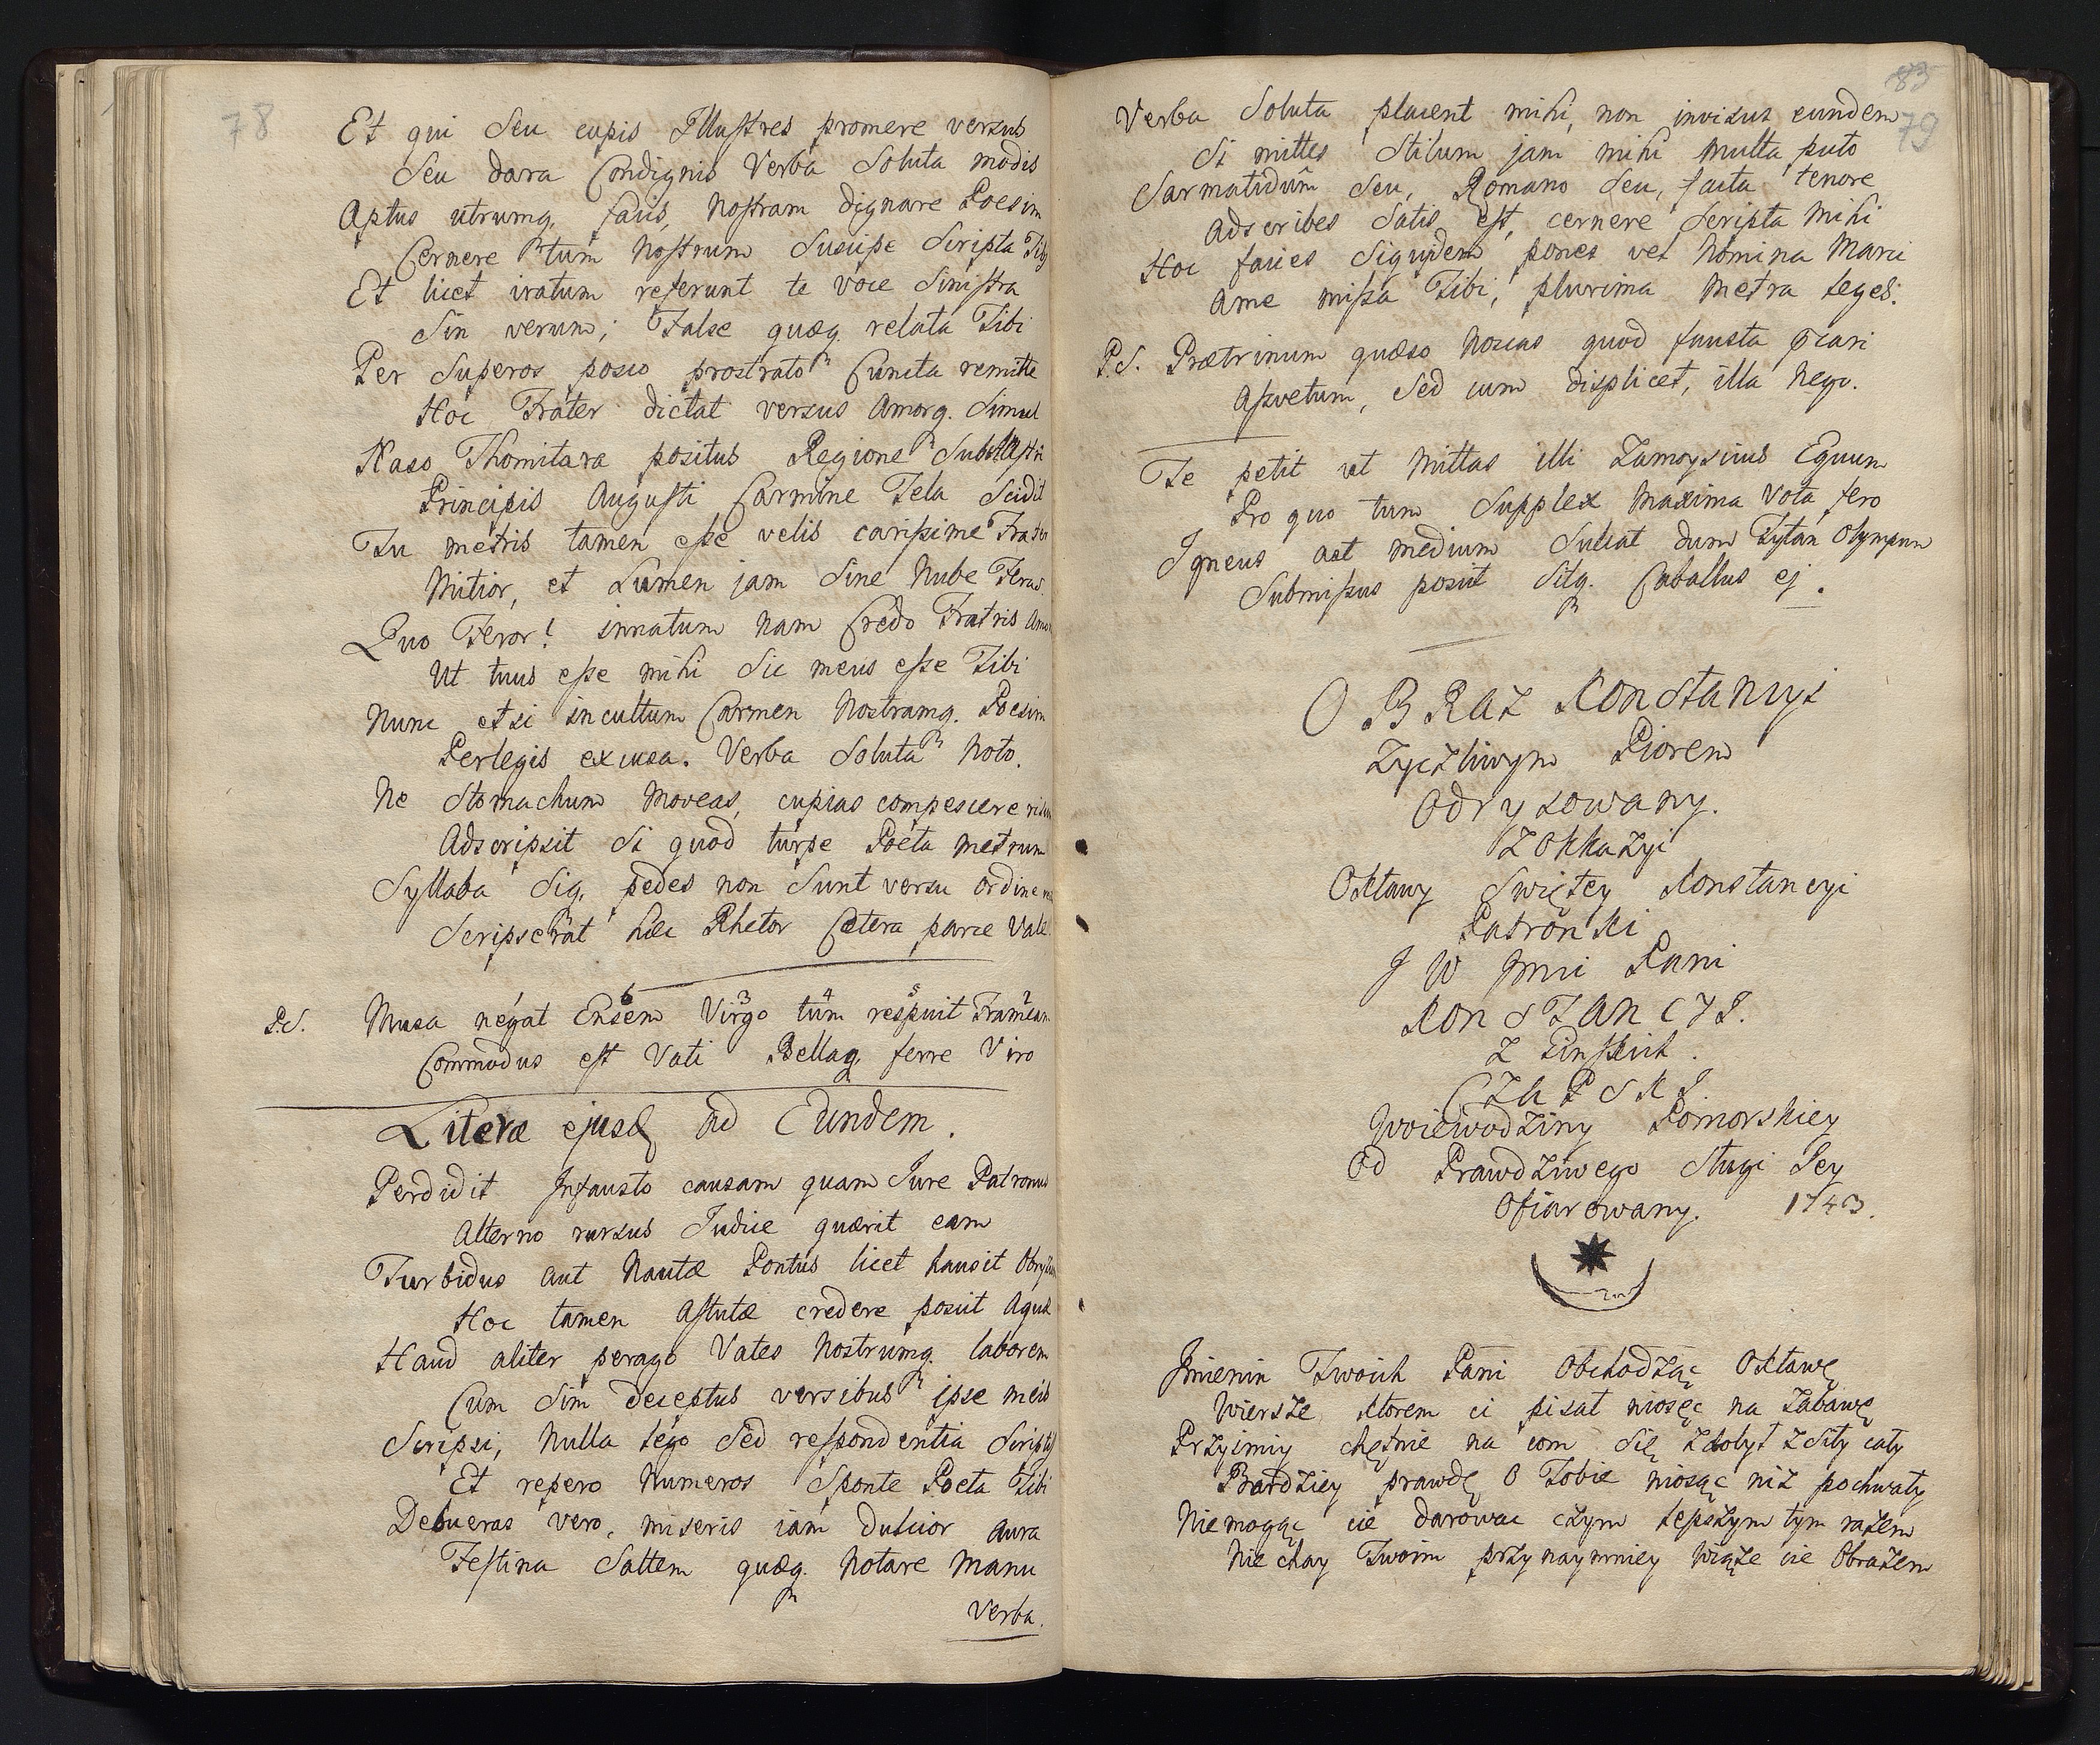 78
Et qui Seu cupis Illustres promere versus
Seu dara Condignis Verba Soluta modis
Aptus utrumq. facis, Nostram dignare Poesim
Cernere tum Nostrum Suscipe Scripta Tibi
Et licet iratum referunt te voce Sinistra
Sin verum; False quæq. relata Tibi
Per Superos posco prostrato Cuncta remitte
Hoc Frater dictat versus Amorq. Simul
Naso Thomitara positus Regione Sub
Principis Augusti Carmine Tela Scidit
Tu metris tamen esse velis carissime Frater
Mitior, et Lumen jam Sine Nube Feras
Quo Feror! innatum Nam Credo Fratris Amor
Ut tuus esse mihi Sic meus esse Tibi
Nunc etsi incultum Carmen Nostramq. Poesim
Perlegis excusa. Verba Soluta Noto.
Ne Stomachum Moveas, cupias compescere risum
Adscripsit Si quod turpe Poeta Metrum
Syllaba Siq. pedes non Sunt versu ordine
Scripserat hæc Rhetor Cætera parce Vale
P.S. Musa negat Ensem Virgo tum respuit Frameam
Commodus est Vati Bellaq. ferre Viro
Literæ ejusd ad Eundem.
Perdidit Infausto causam quam Jure Patronus
Alterno rursus Judice quærit eam
Turbidus aut Nautæ Pontus licet hausit
Hoc tamen Astutæ credere possit Aquæ
Haud aliter perago Vates Nostrumq. laborem
Cum Sim deceptus versibus ipse meis
Scripsi, Nulla lego Sed respondentia Scriptis
Et repero Numeros Sponte Poeta Tibi
Debueras vero, miseris iam dulcior aura
Festina Saltem quæq. Notare Manu
Verba.
83
79
Verba Soluta placent mihi, non invisus eundem
Si mittes Stilum jam mihi Multa puto
Sarmatidum Seu, Romano Seu, facta tenore
Adscribes Satis est, cernere Scripta Mihi
Hoc facies Siquidem pones vel Nomina Marci
Ame missa Tibi, plurima Metra leges.
P.S. Prætrinum quæso Noscas quod fausta
Assuetum, Sed cum displicet, illa Nego.
Te petit ut Mittas illi Zamoyscius Equum
Pro quo tum Supplex Maxima Vota fero
Igneus ast medium Subeat dum Tytan Olympum
Submissus possit Sitq. Caballus ej.
OBRAZ Konstancyi
Zyczliwym Piorem
Odrysowany.
Z Okkazyi
Oktawy Swiętey Konstancyi
Patronki
J W Jmci Pani
KONSTANCYI.
Z Ginskich.
CZAPSKI
Woiewodziny Pomorskiey
Od Prawdziwego Sługi Jey
Ofiarowany. 1743.
Jmienin Twoich Pani Obchodząc Oktawę
Wiersze ktorem ci pisał niosęc na zabawę
Przyimiy chętnie na com Się zdobył z Siły cały
Bardziey prawdę O Tobie niosąc niz pochwały
Niemogąc cie darowac czym lepszym tym razem
Niechay Twoim przynaymniey wiąze cie Obrazem